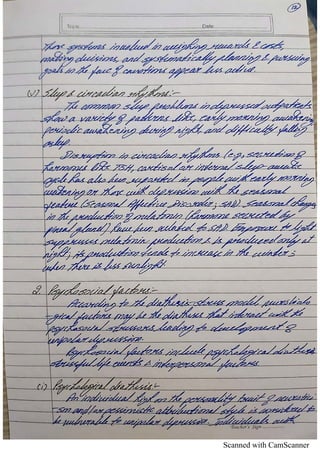 Topic
Date
those systems involved in weighing rewards & costs,
making decisions, and systematically planning & pursuing
goals in the face of emotions appear less active.
v) Sleep & circadian rhythms:-
The common sleep problems in depressed outpatients
show a variety of patterns like, early morning awakening
periodic awakening during night and difficulty falling
asleep.
Disruption in circadian rhythms (e.g., secretion of
hormones like TSH, cortisol or internal sleep-wake
cycle has also been reported in people with early morning
wakening or those with depression with the seasonal
feature (Seasonal Affective Disorder, SAD). Seasonal changes
in the production of melatonin (hormone secreted by
pineal gland) have been related to SAD. Exposure to light
suppresses melatonin production & is produced only at
night; its production tends to increase in the winters
when there is less sunlight.
2. Psychosocial factors:-
According to the diathesis-stress model,
factors may be the diathesis that interact with the
psychosocial stressors leading to development of
unipolar depression.
Psychosocial factors include psychological diathesis
stressful life events & interpersonal factors.
(i) Psychological diathesis:-
An individual high on the personality trait of neurotici-
sm and/or pessimistic attributional style is considered to
be vulnerable to unipolar depression. individuals with
Teacher's Sign
Scanned with CamScanner